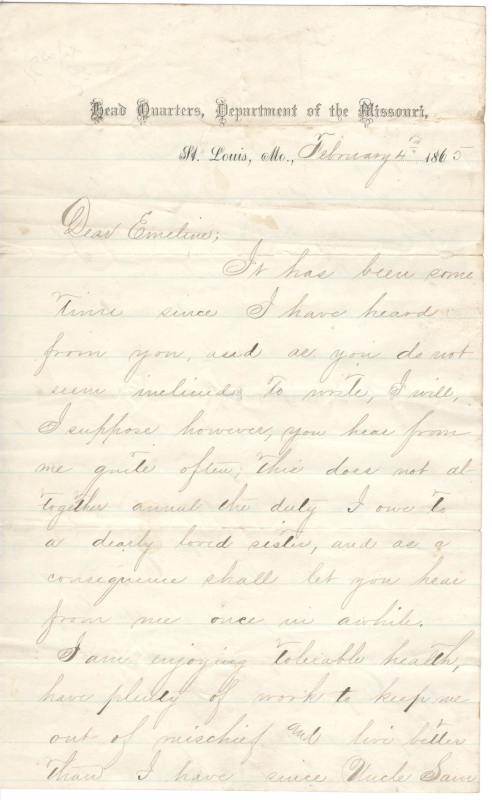 Head Quarters, Department of the Missouri,
St. Louis, Mo., February 4th 1865
Dear Emeline;
It has been some
time since I have heard
from you, and as you do not
seem inclined to write, I will,
I suppose however, you hear from
me quite often; this does not al
together annul the duty I owe to
a dearly loved sister, and as a
consequence shall let you hear
from me once in awhile.
I am enjoying tolerable health,
have plenty of work to keep me
out of mischief and live better
than I have since Uncle Sam